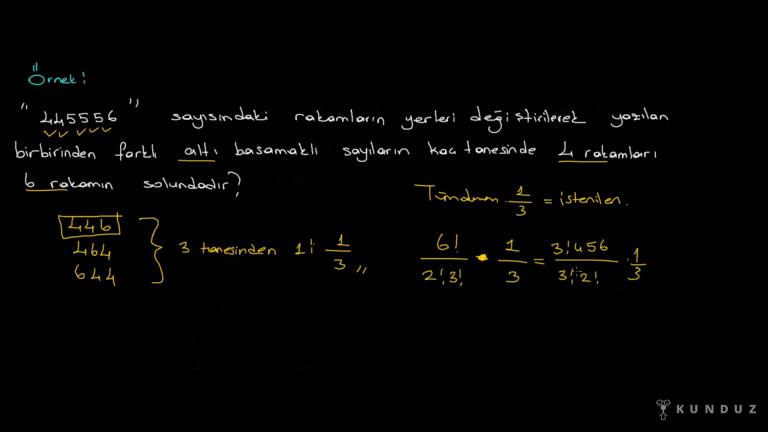 Örnek:
"445556" sayısındaki rakamların yerleri değiştirilerek yazılan
birbirinden farklı altı basamaklı sayıların kaç tanesinde 4 rakamları
6 rakamın solundadır?
446
464
644
3 tanesinden 1'i 1/3 //
Tümünün 1/3 = istenilen.
6!/2!3! · 1/3 = 3!456/3!2! · 1/3
KUNDUZ